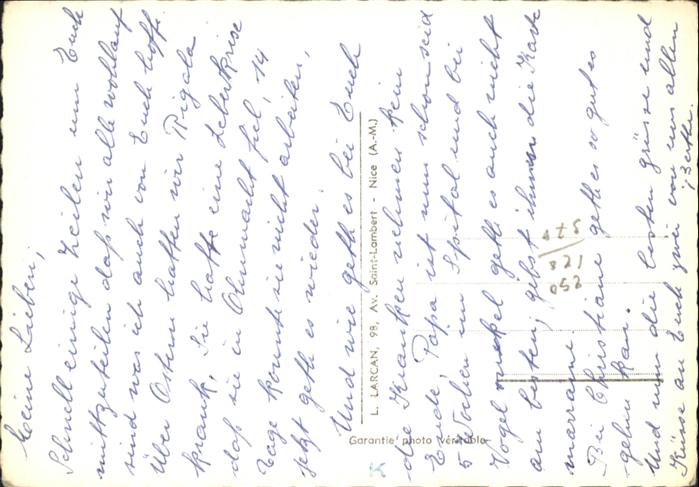 Meine Lieben,
Schnell einige Zeilen um Euch
mittzuteilen daß wir alle wohlauf
sind was ich auch von Euch hoffe.
Über Ostern hatten wir Rigala
krank. Sie hatte eine Leberkrise
daß sie in Ohnmacht fiel, 14
Tage konnte sie nicht arbeiten,
jetzt geth es wieder.
Und wie geth es bei Euch
die Kranken nehmen kein
Ende, Papa ist nun schon seid
5 Wochen im Spital und bei
Vogel geth es auch nicht
am besten, gibst ihnen die Karte
marraine
Bei Christiane geth es so gut es
gehen kan.
Und nun die besten grüsse und
Küsse an Euch zwei von uns allen
Berthe.
L. LARCAN, 98, Av. Saint-Lambert - Nice (A.-M.)
Garantie photo véritable
821
052